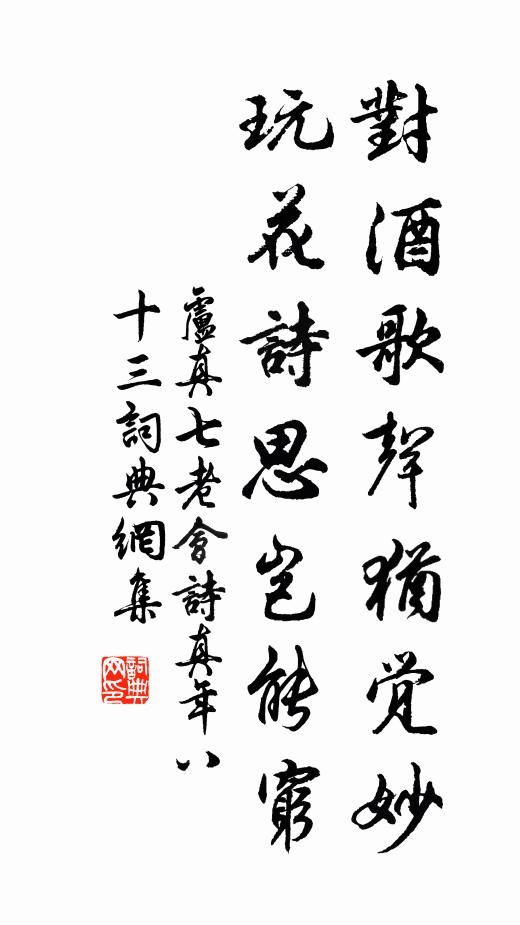 對酒歌聲猶覺妙
玩花詩思豈能窮
盧真七老會詩真年八
十三詞典網集
詞典網印